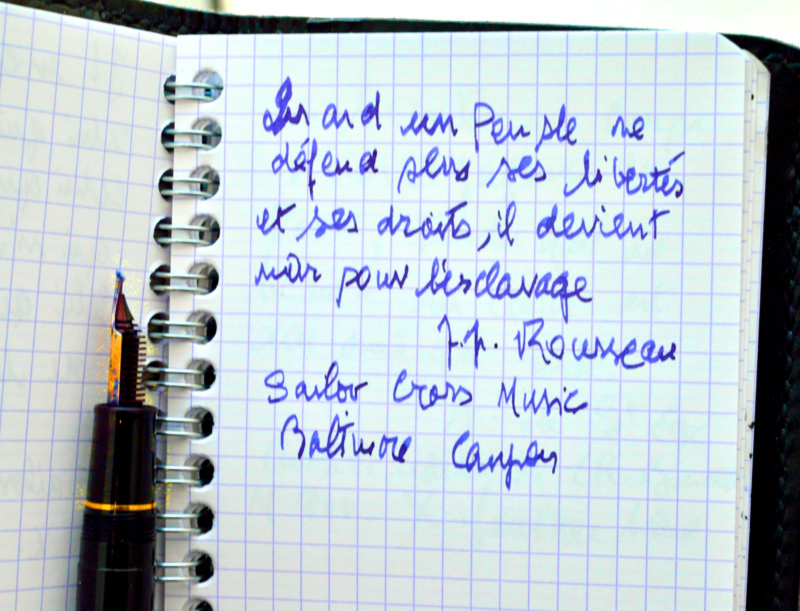 Quand un Peuple ne
défend plus ses libertés
et ses droits, il devient
mûr pour l'esclavage
J.J. Rousseau
Sailor Cross Music
Baltimore Canyon